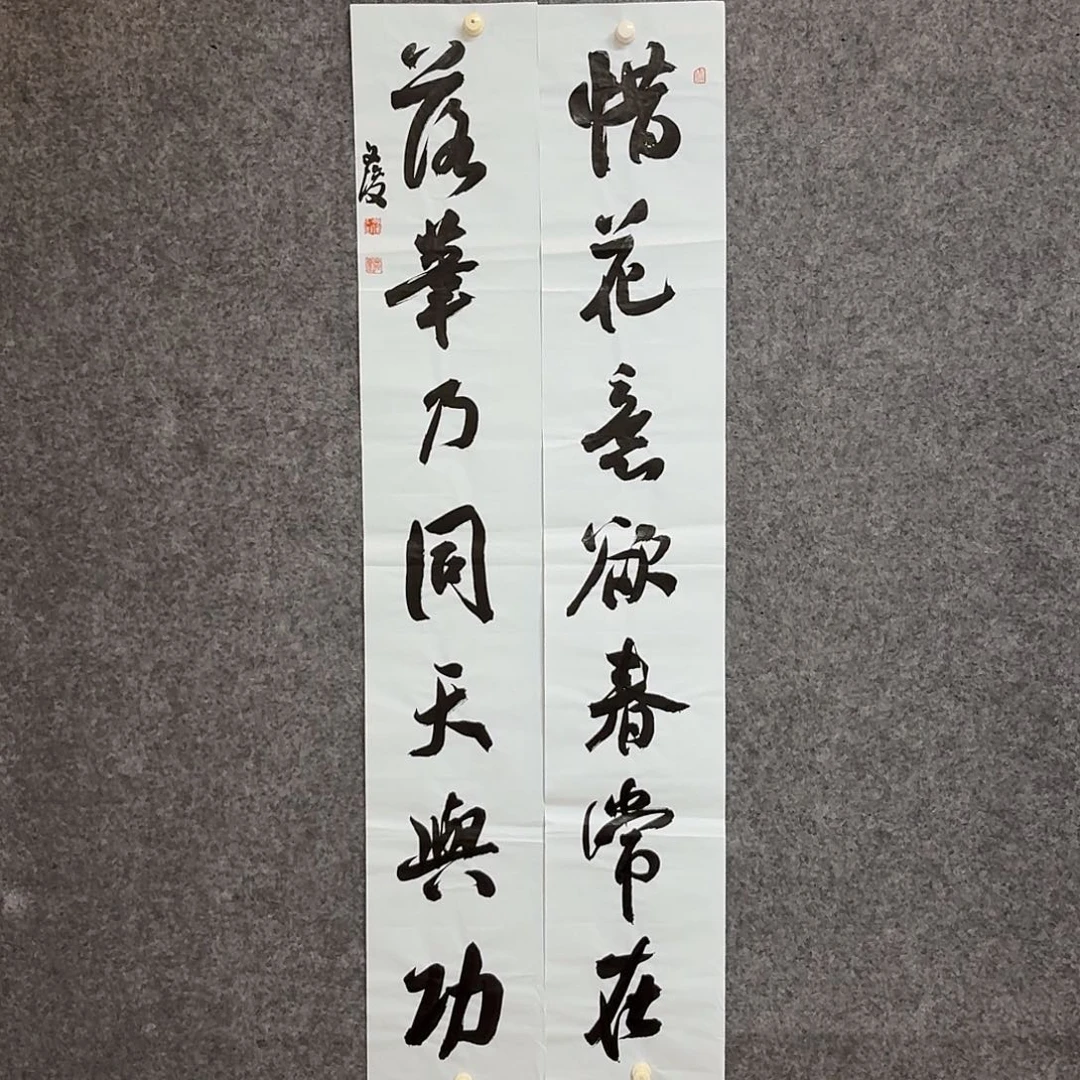 惜花意欲春常在
落筆乃同天與功